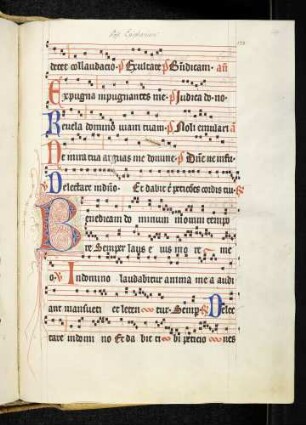 decet collaudacio. p̄ Exultate p̄ Bn̄dicam. añ
Expugna inpugnantes me. p̄ Iudica do no.
Reuela domino uiam tuam. p̄ Noli emulari a
Ne in ira tua arguas me domine. p̄
Delectare in dn̄o. Et dabit t̄ peticōes cordis tui.
Benedicam do minum in omni tempo
re Semper laus e ius in o re me
o. In domino laudabitur anima mea audi
ant mansueti et leten tur. Semp. Delec
tare in domi no Et da bit ti bi peticio nes